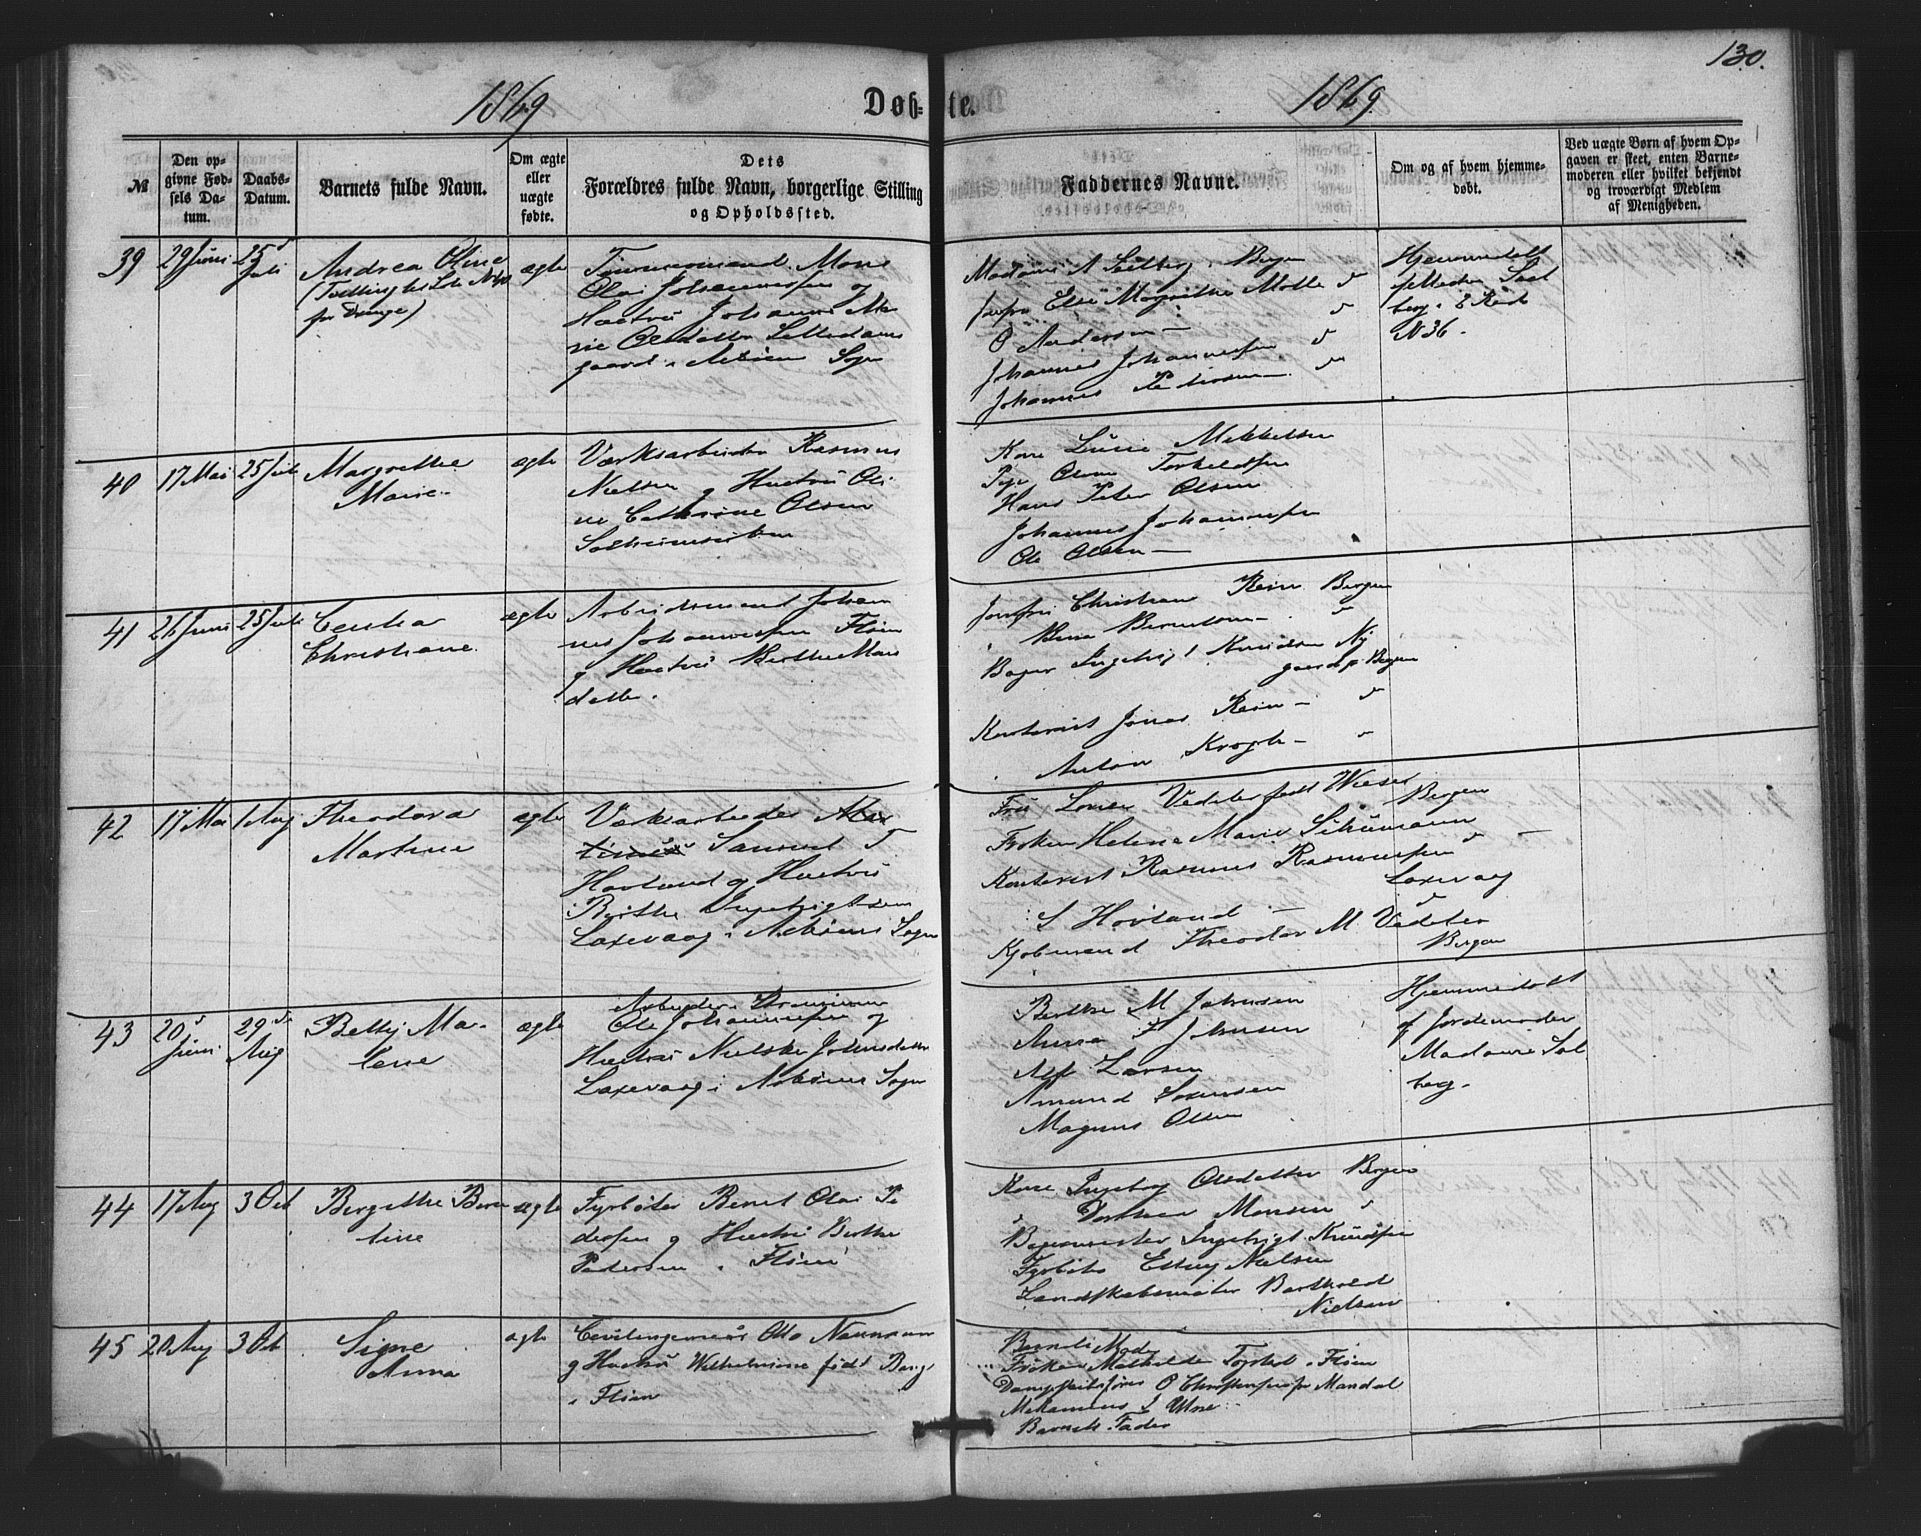 130.
1869
Døb-
te.
1869
№
Den op-
givne Fød-
sels Da-
tum.
Daabs-
Datum.
Barnets fulde Navn.
Om ægte
eller
uægte
fødte.
Dets
Forældres fulde Navn, borgerlige Stilling
og Opholdssted.
Faddernes Navne.
Om og af hvem hjemme-
døbt.
Ved uægte Børn af hvem Op-
gaven er skeet, enten Barne-
moderen eller hvilket bekjendt
og troværdigt Medlem
af Menigheden.
39
29 Juni
25
Juli
Andrea Oline
(Tvilling
ægte
Tømmermand Mons
Olai Johannessen og
Hustru Johanne Ma
rie Olsdatter
gaard i Askøen Sogn
Madame A Solberg, Bergen
Jmfr Else Magrethe Molle
O Andersen
Johannes Johannessen
Johannes
Hjemmedøbt
af Madm Sol
berg
N 36.
40
17 Mai
25 Juli
Margrethe
Marie.
ægte
Værksarbeider Rasmus
Nielsen og Hustru Oli
ne Cathrine Olsen
Solheimsviken
Kone Lucie Mikkelsen
Pige Oline Torkeldsen
Hans Peter Olsen
Johannes Johannessen
Ole Olsen
41
26 Juni
25 Juli
Cecilia
Christiane.
ægte
Arbeidsmand Johan
nes Johannessen Fløien
og Hustru Berthe Mons
datter.
Jomfru Christiane Rein Bergen
Berntsen
Bager Ingebrigt Knudsen Ny
gaard p Bergen
Kontorist Jonas Rein
Anton Krogh
42
17 Mai
1 Aug
Theodora
Martine
ægte
Værksarbeider Mar
tinus Samuel T.
Hovland og Hustru
Berthe Ingebrigtsen
Laxevaag i Askøens Sogn
Fru Louise Vedeler født Wiese
Bergen
Frøken Helene Marie Schumann
Kontorist Rasmus Rasmussen
Laxevaag
S Hovland
Kjøbmand Theodor M Vedeler
Bergen
43
20
Juni
29
Aug
Betty Ma-
lene
ægte
Arbeider
Ole Johannessen og
Hustru Nielske Johnsdatter
Laxevaag i Askøens Sogn
Berthe M Johnsen
Anna J Johnsen
Alf Larsen
Amund Sørensen
Magnus Olsen
Hjemmedøbt
af Jordemoder
Madame Sol
berg.
44
17 Aug
3 Oct
Bergithe Bern
tine
ægte
Fyrbøter Bernt Olai Pe
dersen og Hustru Berthe
Pedersen i Fløien
Kone Ingeborg Olsdatter Bergen
Dorthea Monsen
Bagermester Ingebrigt Knudsen
Fyrbøter Nielsen
Berthold
Nielsen
45
20 Aug
3 Oct
Signe
Anna
ægte
Civilingeniør Otto Naumann
og Hustru Wilhelmine født Berg
i Fløien
Barnets Moder
Frøken Mathilde i Fløien
Dampskibsfører O Christensen fr Mandal
Mekanicus
Barnets Fader